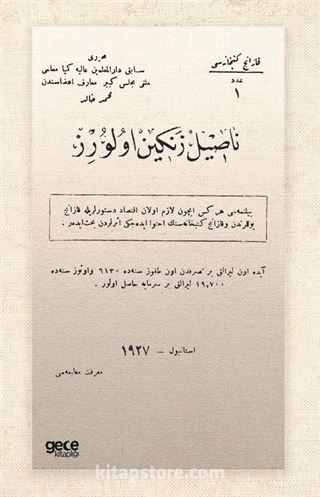 قازانج كتبخانه‌سی
عدد
١
محرری
سابق دارالمعلمین عالیه كیمیا معلمی
ملی مجلس كبیر معارف اعضاسندن
محمد خالد
ناصیل زنكین اولورز
بیلنمه‌سی هركس ایچون لازم اولان اقتصاد دستورلریله قازانج
یوللرندن و قازانج كتبخانه‌سنك احتوا ایده‌جكی اثرلردن بحث ایدر.
آیده اون لیرالق بر تصرفدن اون طقوز سنه‌ده ٦١٣٠ و اوتوز سنه‌ده
١٩,٧٠٠ لیرالق بر سرمایه حاصل اولور.
استانبول – ١٩٢٧
معرفت مطبعه‌سی
gece
kitaplığı
kitapstore.com